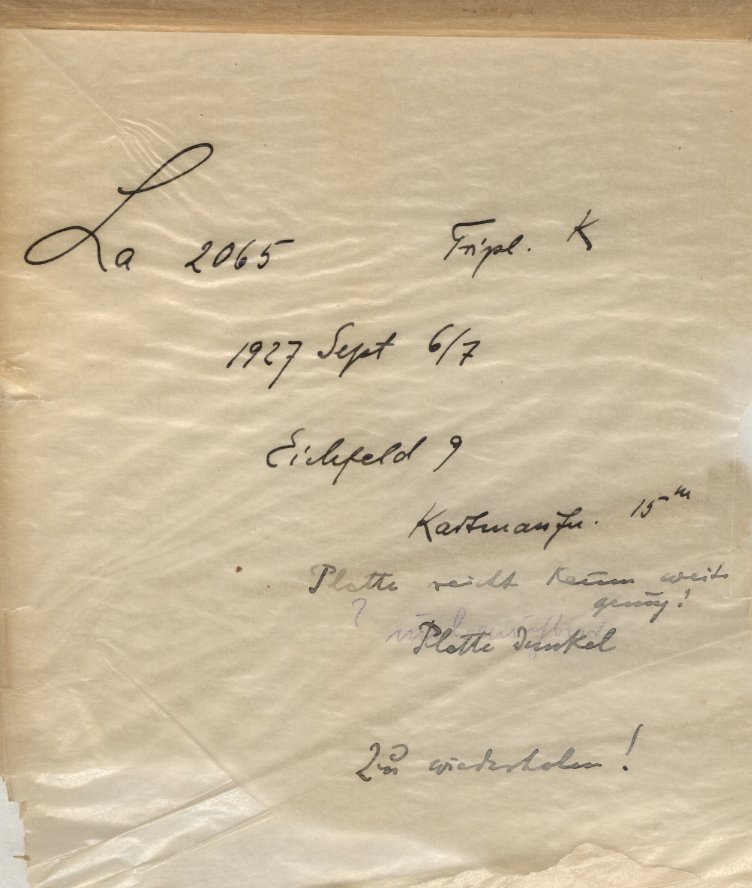 La 2065 Tripl. K
1927 Sept 6/7
Eichfeld 9
15ᵐ
Platte reicht kaum weit
genug!
?
Platte dunkel
Zu wiederholen!